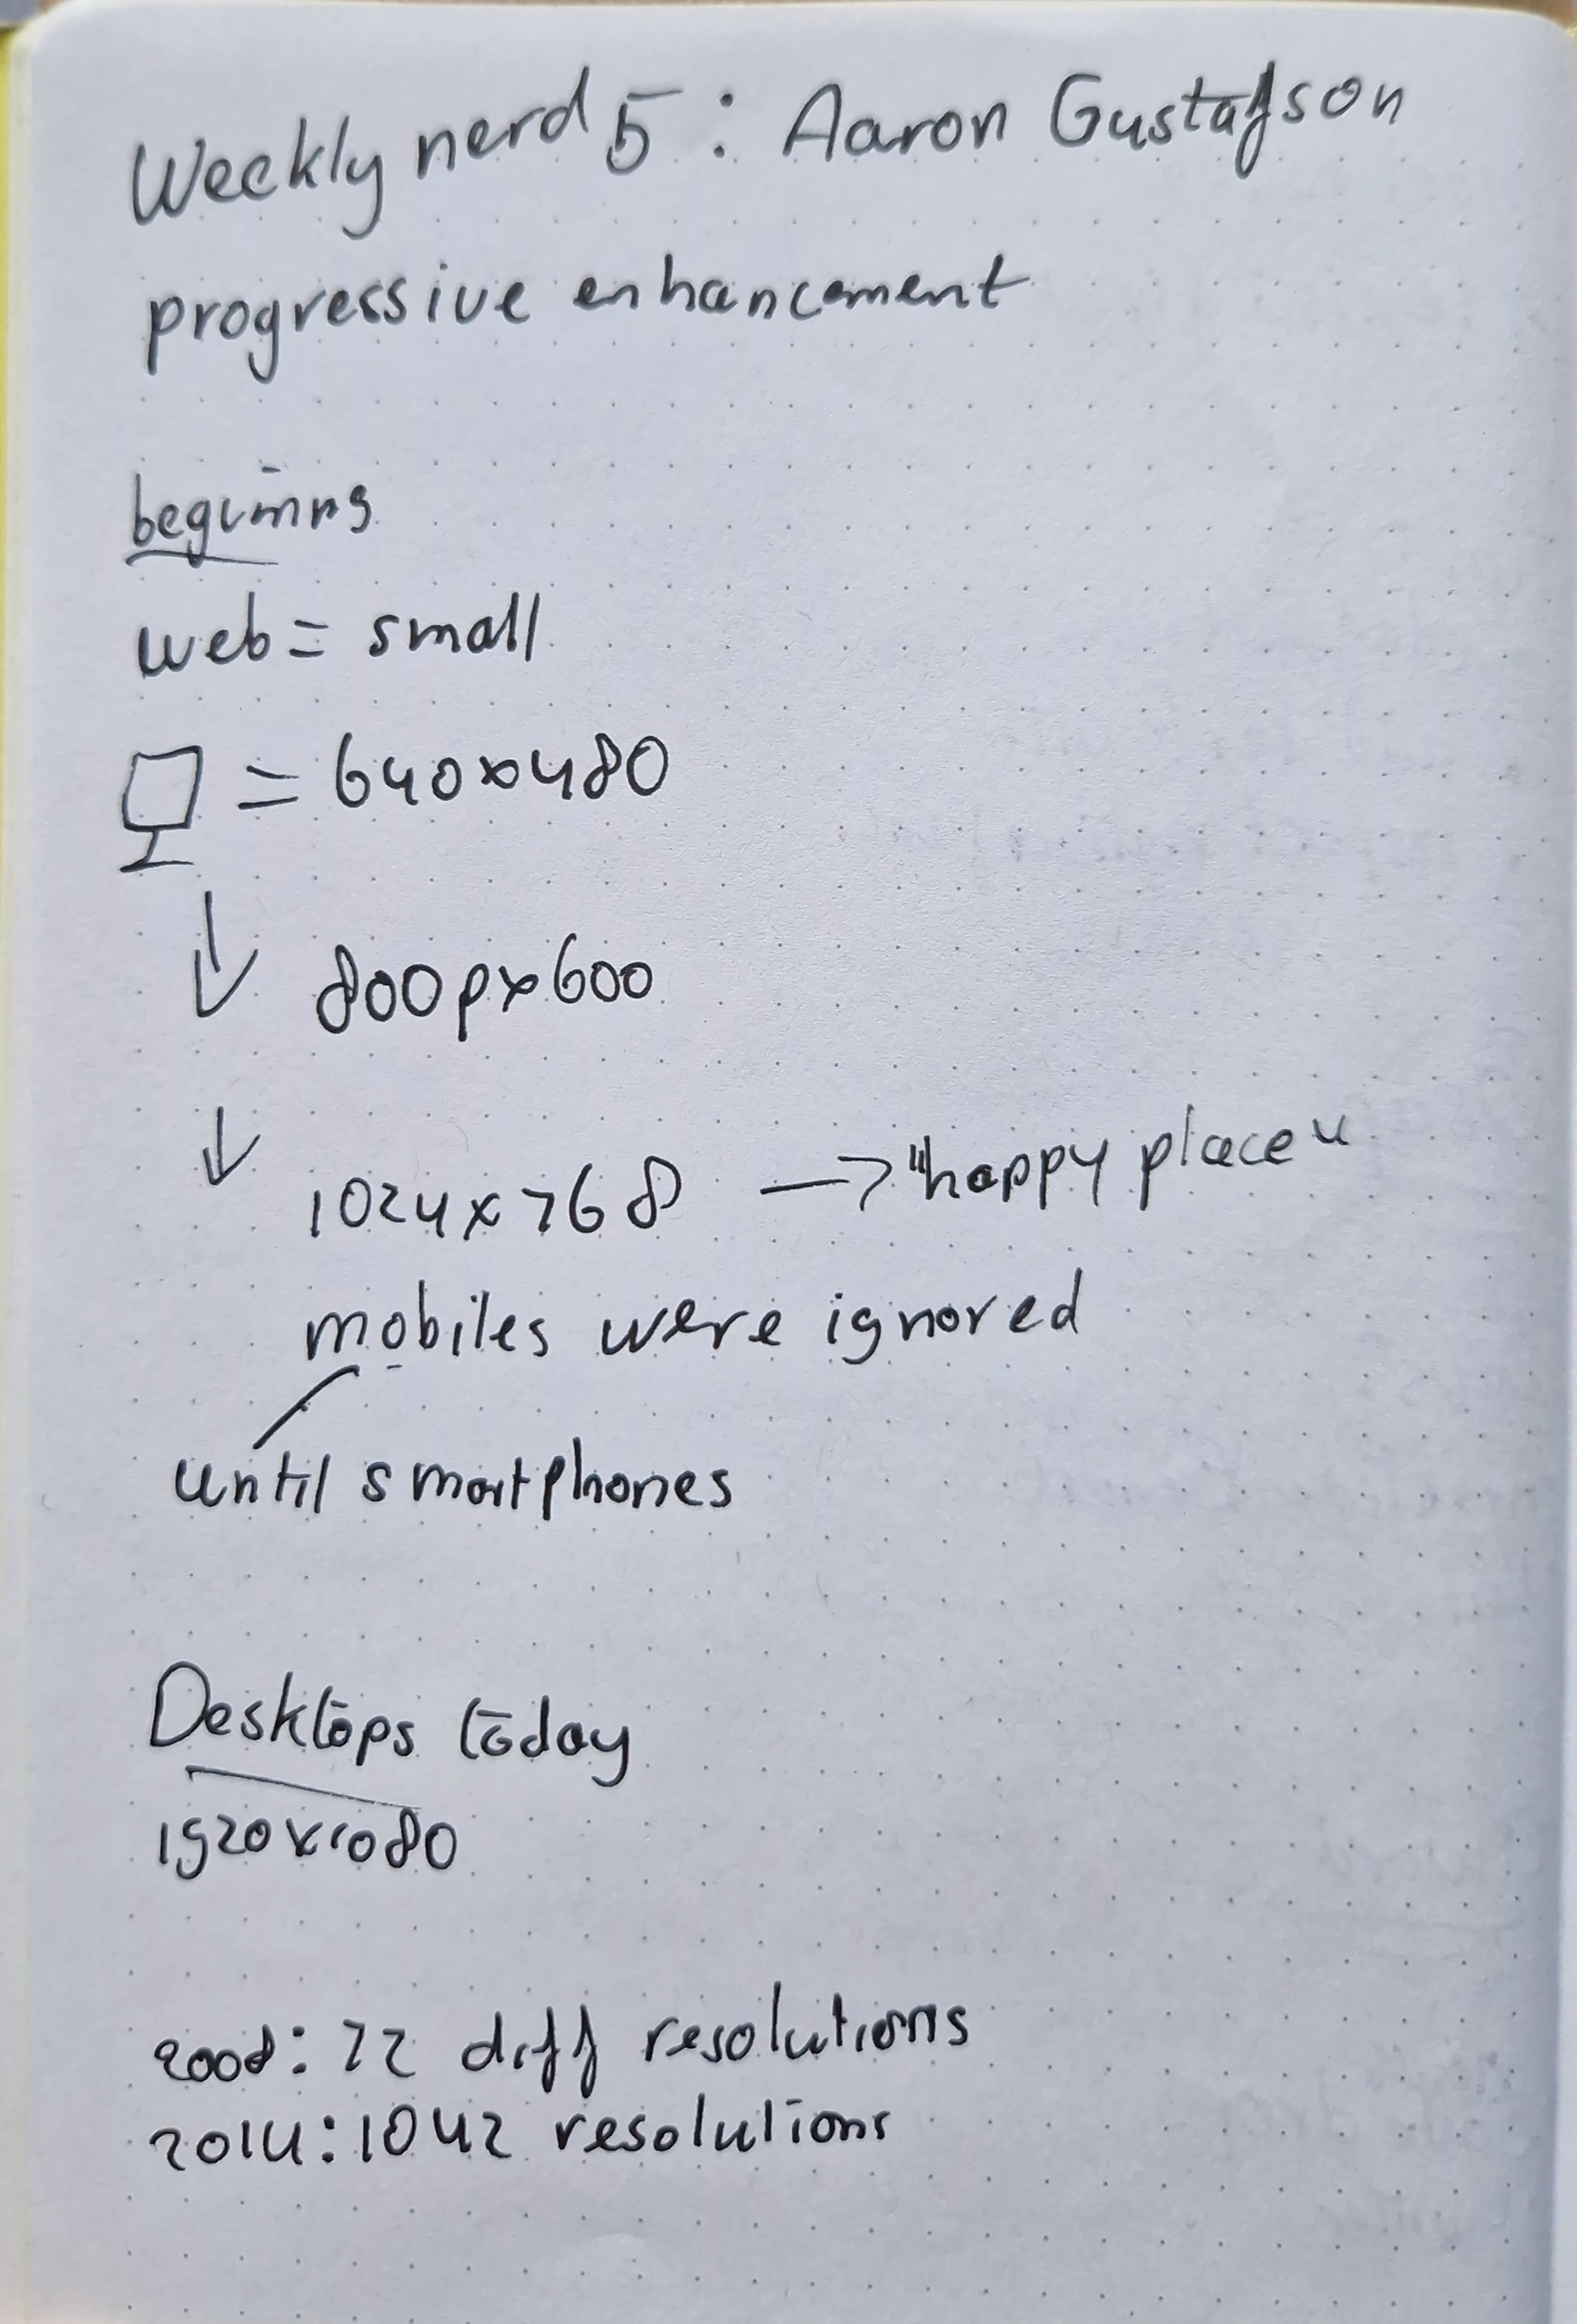 Weekly nerd 5: Aaron Gustafson
progressive enhancement
beginnng
web = small
= 640x480
↓ 800px600
↓ 1024x768 → "happy place"
mobiles were ignored
until smartphones
Desktops today
1920x1080
2008: 72 diff resolutions
2014: 1042 resolutions